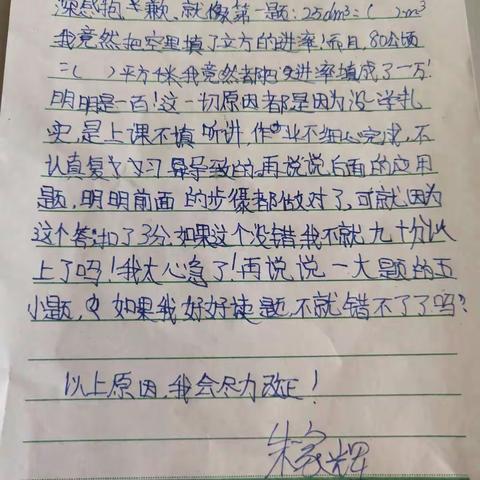 深感抱歉、就像第一题:25dm³=( )m³
我竟然把空里填了立方的进率!而且,80公顷
=( )平方千米,我竟然都把进率填成了一万!
明明是一百!这一切原因都是因为没学扎
实,是上课不填听讲,作业不细心完成,不
认真复习导致的,再说说后面的应用
题,明明前面的步骤都做对了,可就因为
这个答扣了3分,如果这个没错我不就九十分以
上了吗!我太心急了!再说说一大题的五
小题,如果我好好读题,不就错不了了吗?
以上原因,我会尽力改正!
朱家辉